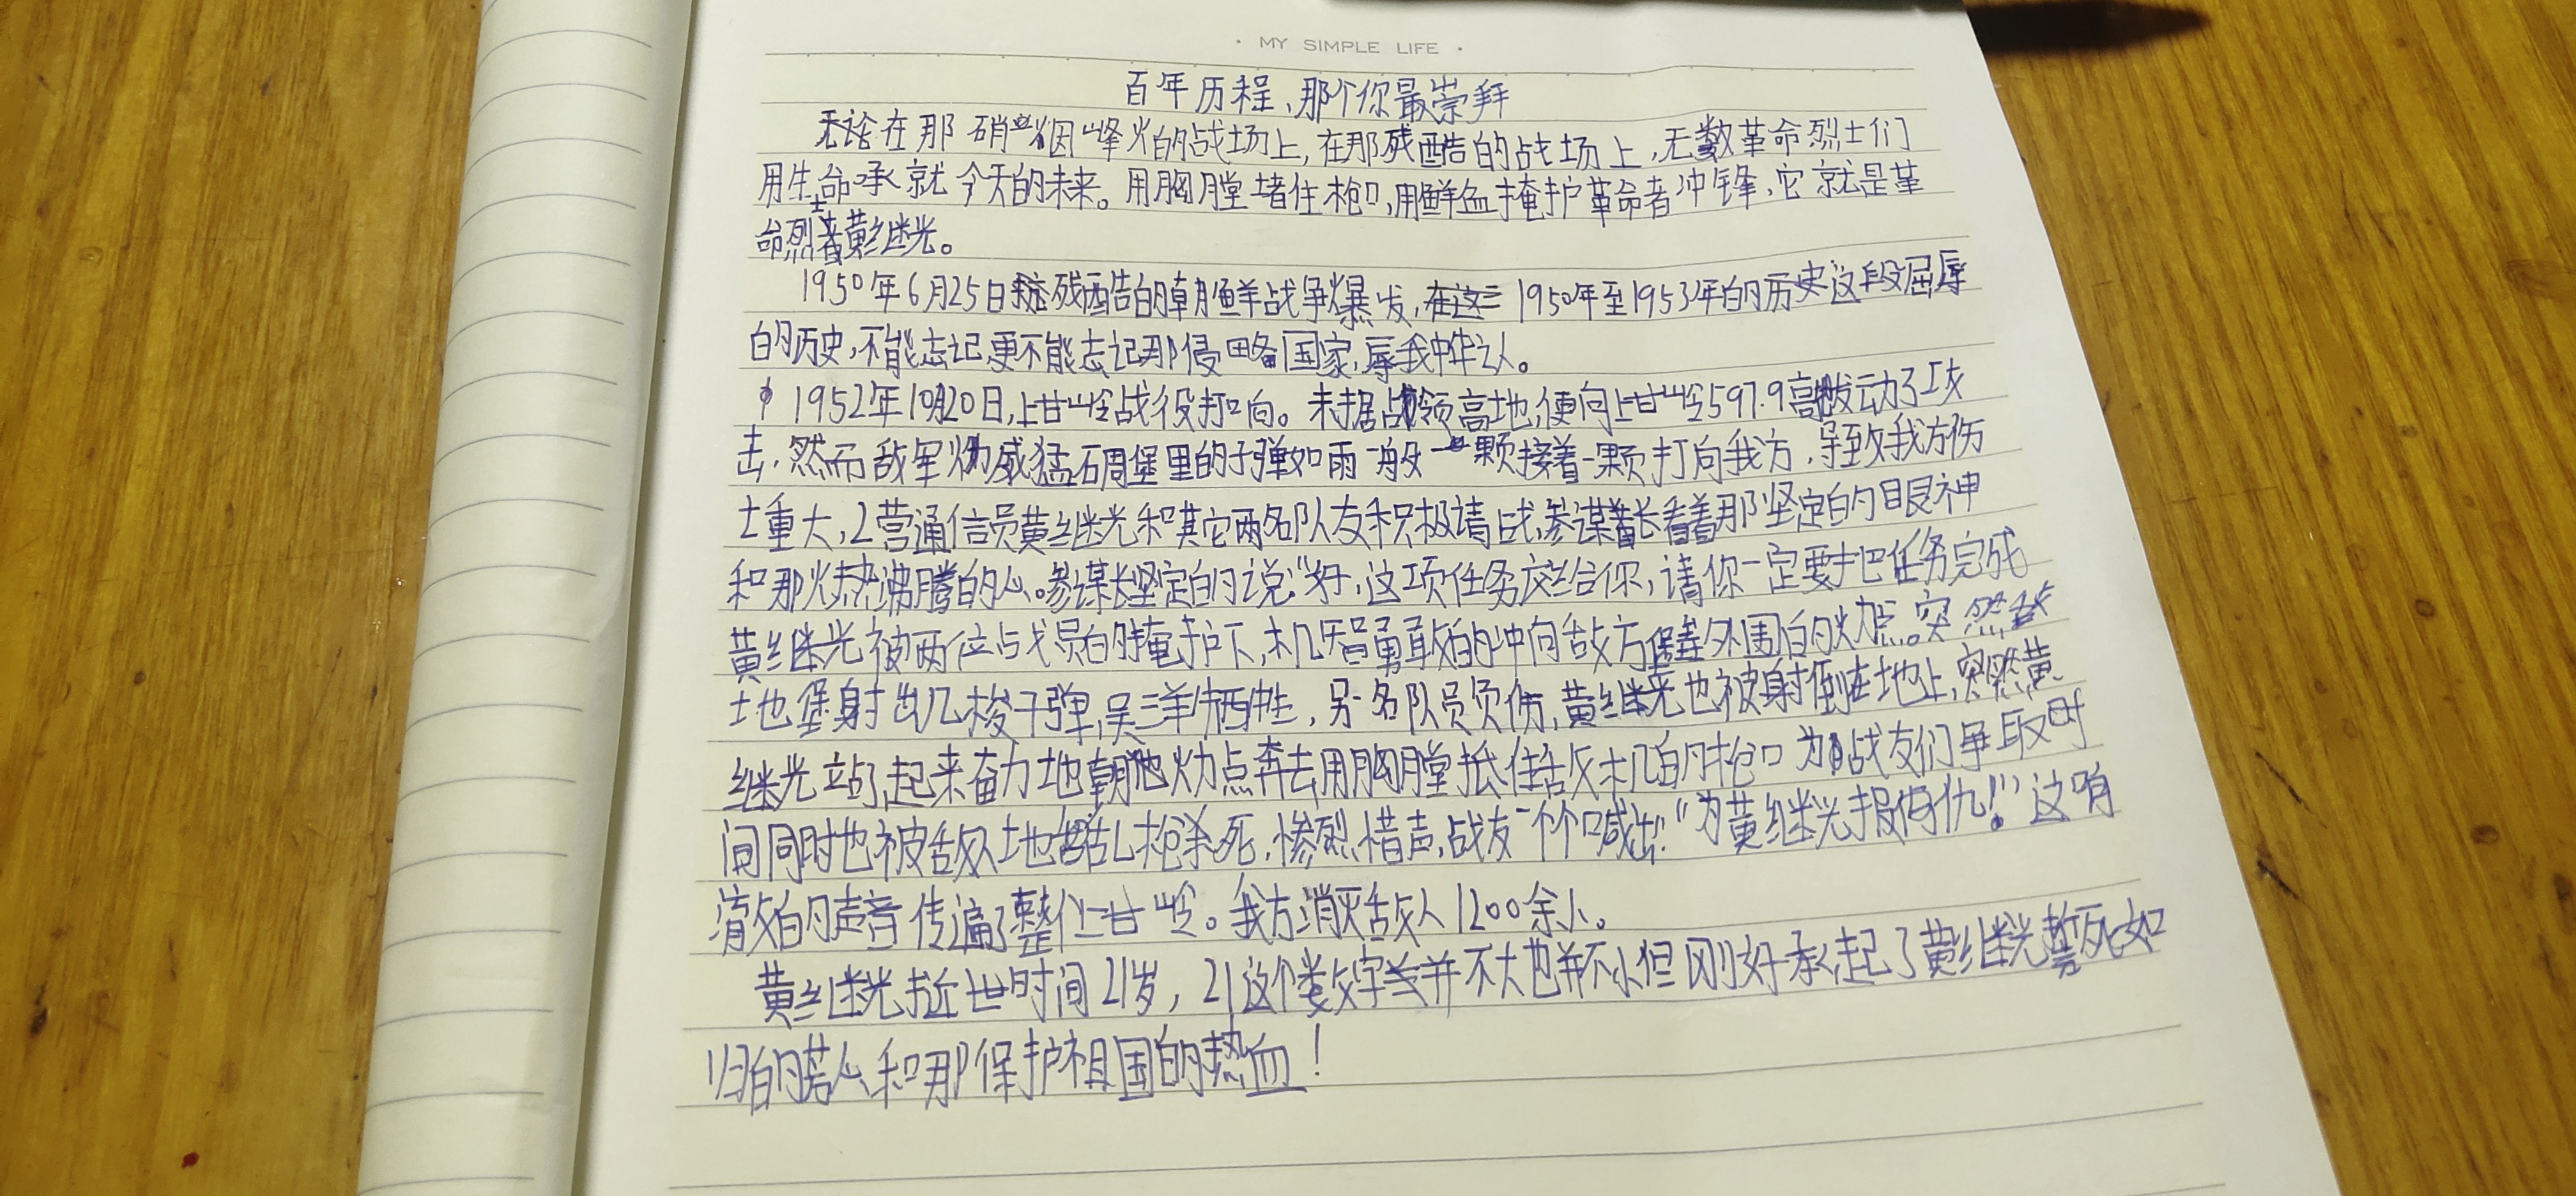 · MY SIMPLE LIFE ·
百年历程、那个你最崇拜
无论在那硝烟峰火的战场上,在那残酷的战场上,无数革命烈士们
用生命承就今天的未来。用胸膛堵住枪口,用鲜血掩护革命者冲锋,它就是革
命烈士黄继光。
1950年6月25日残酷的朝鲜战争爆发,1950年至1953年的历史这段屈辱
的历史,不能忘记更不能忘记那侵略国家,辱我中华之人。
1952年10月20日,上甘岭战役打响。未据占领高地,便向上甘岭597.9高地发动了攻
击,然而敌军火力威猛碉堡里的子弹如雨一般一颗接着一颗打向我方,导致我方伤
士重大,2营通信员黄继光和其它两名队友积极请战,参谋长看着那坚定的眼神
和那炽热沸腾的心。参谋长坚定的说:“好,这项任务交给你,请你一定要把任务完成
黄继光被两位战员的掩护下,机智勇敢的冲向敌方堡垒外围的火力点。突然敌
地堡射出几梭子弹,吴三羊牺牲,另一名队员负伤,黄继光也被射倒在地上,突然黄
继光站起来奋力地朝火力点奔去用胸膛抵住敌机的枪口为战友们争取时
间同时也被敌人地乱枪杀死,惨烈惜声,战友一个个喊出:“为黄继光报仇!”这响
的声音传遍了整个上甘岭。我方消灭敌人1200余人。
黄继光逝世时间21岁,21这个数字并不大也并不小但刚好承起了黄继光誓死如
归的和那保护祖国的热血!